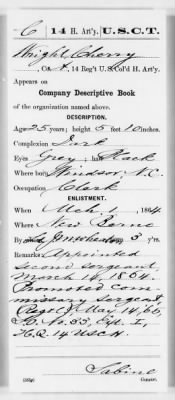 C | 14 H. Art'y. | U.S.C.T.
Wright, Cherry
, Co. , 14 Reg't U.S. Col'd H. Art'y.
Appears on
Company Descriptive Book
of the organization named above.
DESCRIPTION.
Age 25 years; height 5 feet 10 inches.
Complexion Dark
Eyes Grey; hair Black
Where born Windsor, N.C.
Occupation Clerk
ENLISTMENT.
When Mch. 1, 1864.
Where New Berne
By ; term 3 y'rs.
Remarks Appointed
second sergeant,
March 14, 1864.
Promoted com-
missary sergeant,
Regt C.S. May 14, 65,
S.O. No. 53, Ext. I,
H.Q. 14 USCH
Sabine
Copyist.